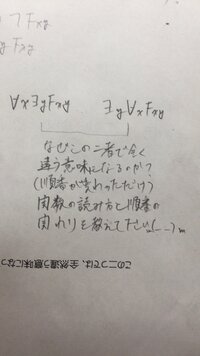 ∀x∃yFxy ∃y∀xFxy
なぜこの二者で全く
違う意味になるのか?
(順番が変わっただけ)
関数の読み方と順番の
関わりを教えて下さい(_ _)m
この二つでは、全然違う意味になっ